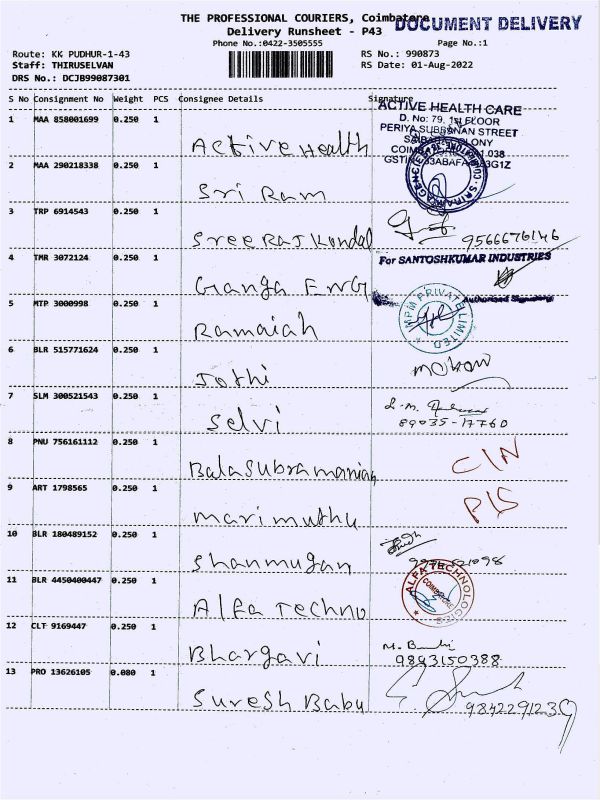 THE PROFESSIONAL COURIERS, Coimbatore
DOCUMENT DELIVERY
Delivery Runsheet - P43
Phone No.:0422-3505555
Page No.:1
Route: KK PUDHUR-1-43
RS No.: 990873
Staff: THIRUSELVAN
RS Date: 01-Aug-2022
DRS No.: DCJB99087301
S No Consignment No Weight PCS Consignee Details Signature
1 MAA 858001699 0.250 1 Active Health
ACTIVE HEALTH CARE
D. No: 79, 1st FLOOR
PERIYA SUBBANAN STREET
2 MAA 290218338 0.250 1 Sri Ram
3 TRP 6914543 0.250 1 Sree Raj Kondal 9566676146
4 TMR 3072124 0.250 1 Ganga Eng
For SANTOSHKUMAR INDUSTRIES
Authorised Signatory
5 MTP 3000998 0.250 1 Ramaiah
MPM PRIVATE LIMITED
6 BLR 515771624 0.250 1 Jothi
7 SLM 300521543 0.250 1 Selvi
89035-17760
8 PNU 756161112 0.250 1 Balasubramanian C/N
9 ART 1798565 0.250 1 Marimuthu P/S
10 BLR 180489152 0.250 1 Shanmugan
11 BLR 4450400447 0.250 1 Alfa Techno
ALFA TECHNOLOGIES
COIMBATORE
12 CLT 9169447 0.250 1 Bhargavi
9893150388
13 PRO 13626105 0.080 1 Suresh Babu